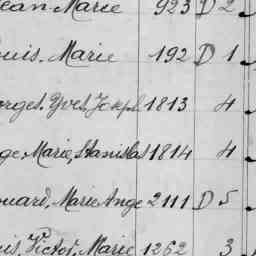 ean Marie 923 D 2
ouis, Marie 192 D 1
orges, Yves, Joseph 1813 4
ge, Marie, Stanislas 1814 4
ouard, Marie Ange 2111 D 5
is, Victor, Marie 1262 3